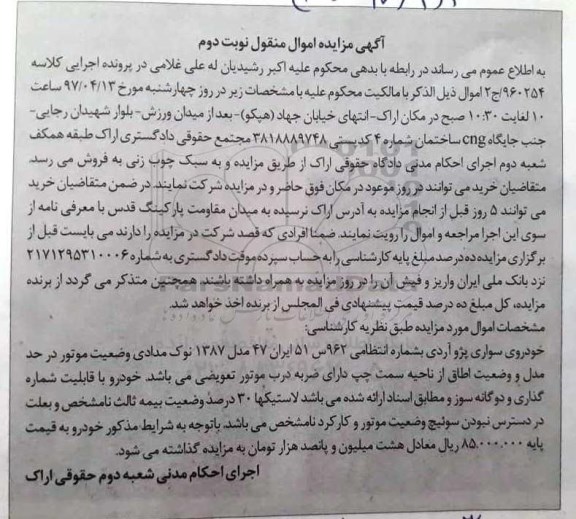 آگهی مزایده اموال منقول نوبت دوم
به اطلاع عموم می رساند در رابطه با بدهی محکوم علیه اکبر رشیدیان له علی غلامی در پرونده اجرایی کلاسه
۹۶۰۲۵۴/ج۲ اموال ذیل الذکر با مالکیت محکوم علیه با مشخصات زیر در روز چهارشنبه مورخ ۹۷/۰۴/۱۳ ساعت
۱۰ لغایت ۱۰:۳۰ صبح در مکان اراک-انتهای خیابان جهاد (هپکو)-بعد از میدان ورزش-بلوار شهیدان رجایی-
جنب جایگاه cng ساختمان شماره ۴ کدپستی ۳۸۱۸۸۸۹۷۴۸ مجتمع حقوقی دادگستری اراک طبقه همکف
شعبه دوم اجرای احکام مدنی دادگاه حقوقی اراک از طریق مزایده و به سبک چوب زنی به فروش می رسد.
متقاضیان خرید می توانند در روز موعود در مکان فوق حاضر و در مزایده شرکت نمایند. در ضمن متقاضیان خرید
می توانند ۵ روز قبل از انجام مزایده به آدرس اراک نرسیده به میدان مقاومت پارکینگ قدس با معرفی نامه از
سوی این اجرا مراجعه و اموال را رویت نمایند. ضمنا افرادی که قصد شرکت در مزایده را دارند می بایست قبل از
برگزاری مزایده ده درصد مبلغ پایه کارشناسی را به حساب سپرده موقت دادگستری به شماره ۲۱۷۱۲۹۵۳۱۰۰۰۶
نزد بانک ملی ایران واریز و فیش آن را در روز مزایده به همراه داشته باشند. همچنین متذکر می گردد از برنده
مزایده، کل مبلغ ده درصد قیمت پیشنهادی فی المجلس از برنده اخذ خواهد شد.
مشخصات اموال مورد مزایده طبق نظریه کارشناسی:
خودروی سواری پژو آردی بشماره انتظامی ۹۶۲س۵۱ ایران ۴۷ مدل ۱۳۸۷ نوک مدادی وضعیت موتور در حد
مدل و وضعیت اطاق از ناحیه سمت چپ دارای ضربه درب موتور تعویضی می باشد. خودرو با قابلیت شماره
گذاری و دوگانه سوز و مطابق اسناد ارائه شده می باشد لاستیکها ۳۰ درصد وضعیت بیمه ثالث نامشخص و بعلت
در دسترس نبودن سوئیچ وضعیت موتور و کارکرد نامشخص می باشد. باتوجه به شرایط مذکور خودرو به قیمت
پایه ۸۵.۰۰۰.۰۰۰ ریال معادل هشت میلیون و پانصد هزار تومان به مزایده گذاشته می شود.
اجرای احکام مدنی شعبه دوم حقوقی اراک